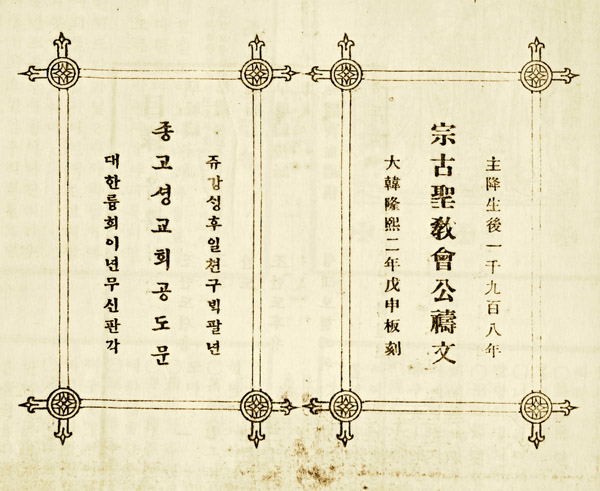 主降生後一千九百八年
宗古聖敎會公禱文
大韓隆熙二年戊申板刻
쥬강ᄉᆡᆼ후일쳔구ᄇᆡᆨ팔년
종고셩교회공도문
대한륭희이년무신판각